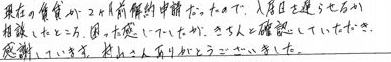 現在の賃貸が2ヶ月前解約申請だったので、入居日を遅らせるか
相談したところ、困った感じでしたが、きちんと確認していただき、
感謝しています。村山さんありがとうございました。